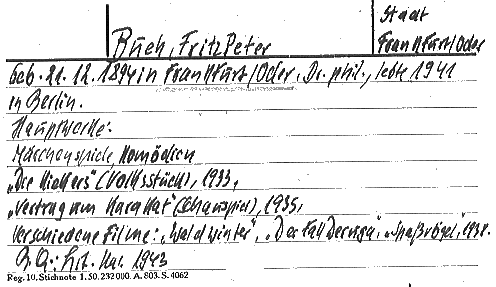 Stadt
Buch, Fritz Peter Frankfurt/Oder
geb. 21.12.1894 in Frankfurt/Oder, Dr. phil., lebte 1941
in Berlin.
Hauptwerke:
Märchenspiele, Komödien
(Volksstück), 1933,
"Vertrag um Karakat" (Schauspiel), 1935,
Verschiedene Filme: "Waldwinter", "Der Fall Deruga", "Spaßvögel", 1938.
Lit. Kal. 1943
Reg. 10. Stichnote 1. 50. 232000. A. 803. S. 4062